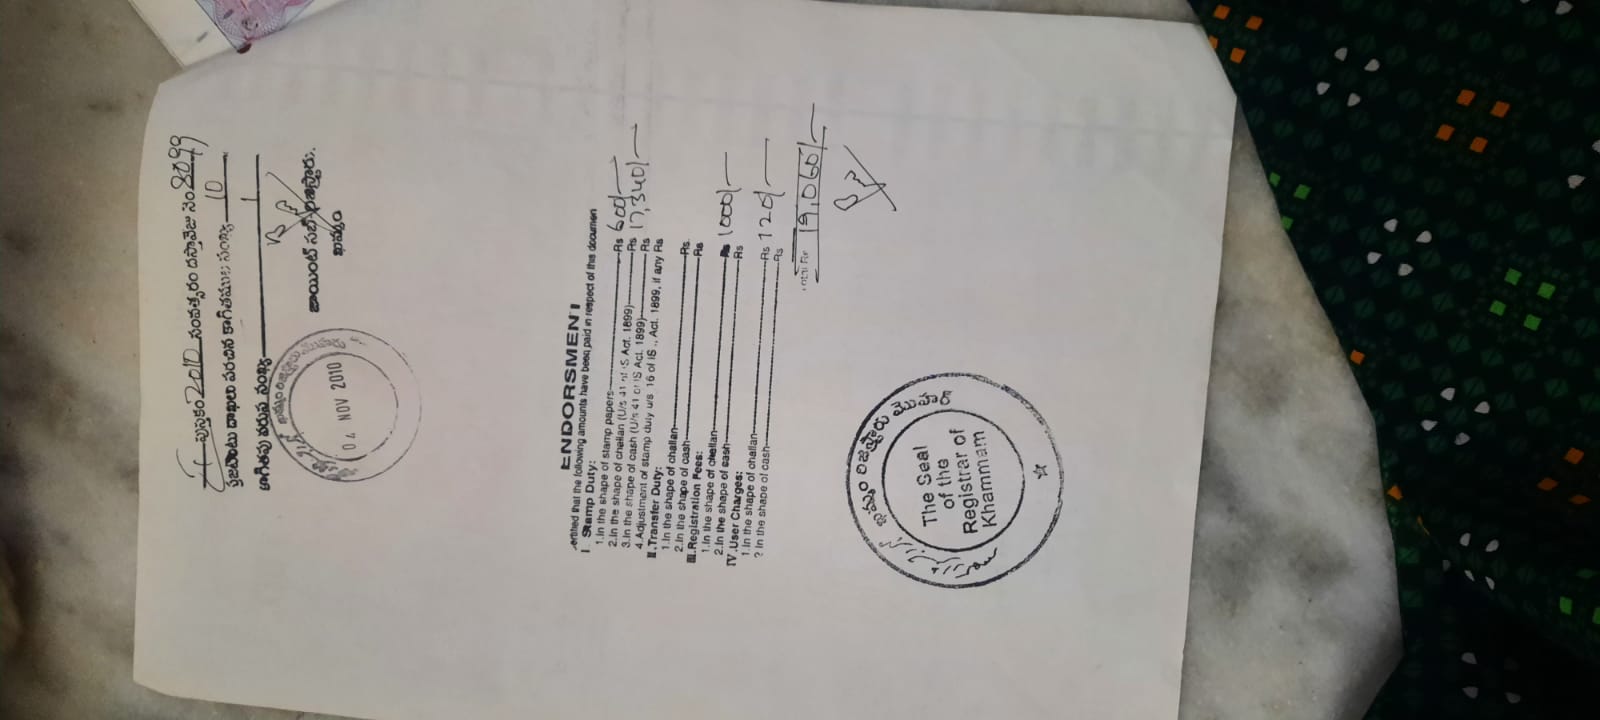 పుస్తకం 2010 సంవత్సరం దస్తావేజు నెం 8099
దాఖలు పరచిన కాగితముల సంఖ్య 10
కాగితపు వరుస సంఖ్య 1
జాయింట్ సబ్-రిజిస్ట్రారు.
ఖమ్మం
04 NOV 2010
ENDORSMENT
ertified that the following amounts have been paid in respect of this documen
I Stamp Duty:
1.In the shape of stamp papers Rs 600/-
2.In the shape of challan (U/s 41 of IS Act. 1899) Rs 17,340/-
3.In the shape of cash (U/s 41 of IS Act. 1899) Rs
4.Adjustment of stamp duty u/s 16 of IS., Act. 1899, if any Rs
II.Transfer Duty:
1.In the shape of challan Rs.
2.In the shape of cash Rs
III.Registration Fees:
1.In the shape of challan Rs 1000/-
2.In the shape of cash Rs
IV.User Charges:
1.In the shape of challan Rs 120/-
2 In the shape of cash Rs
Total Rs 19,060/-
ఖమ్మం రిజిస్ట్రారు మొహరు
The Seal
of the
Registrar of
Khammam